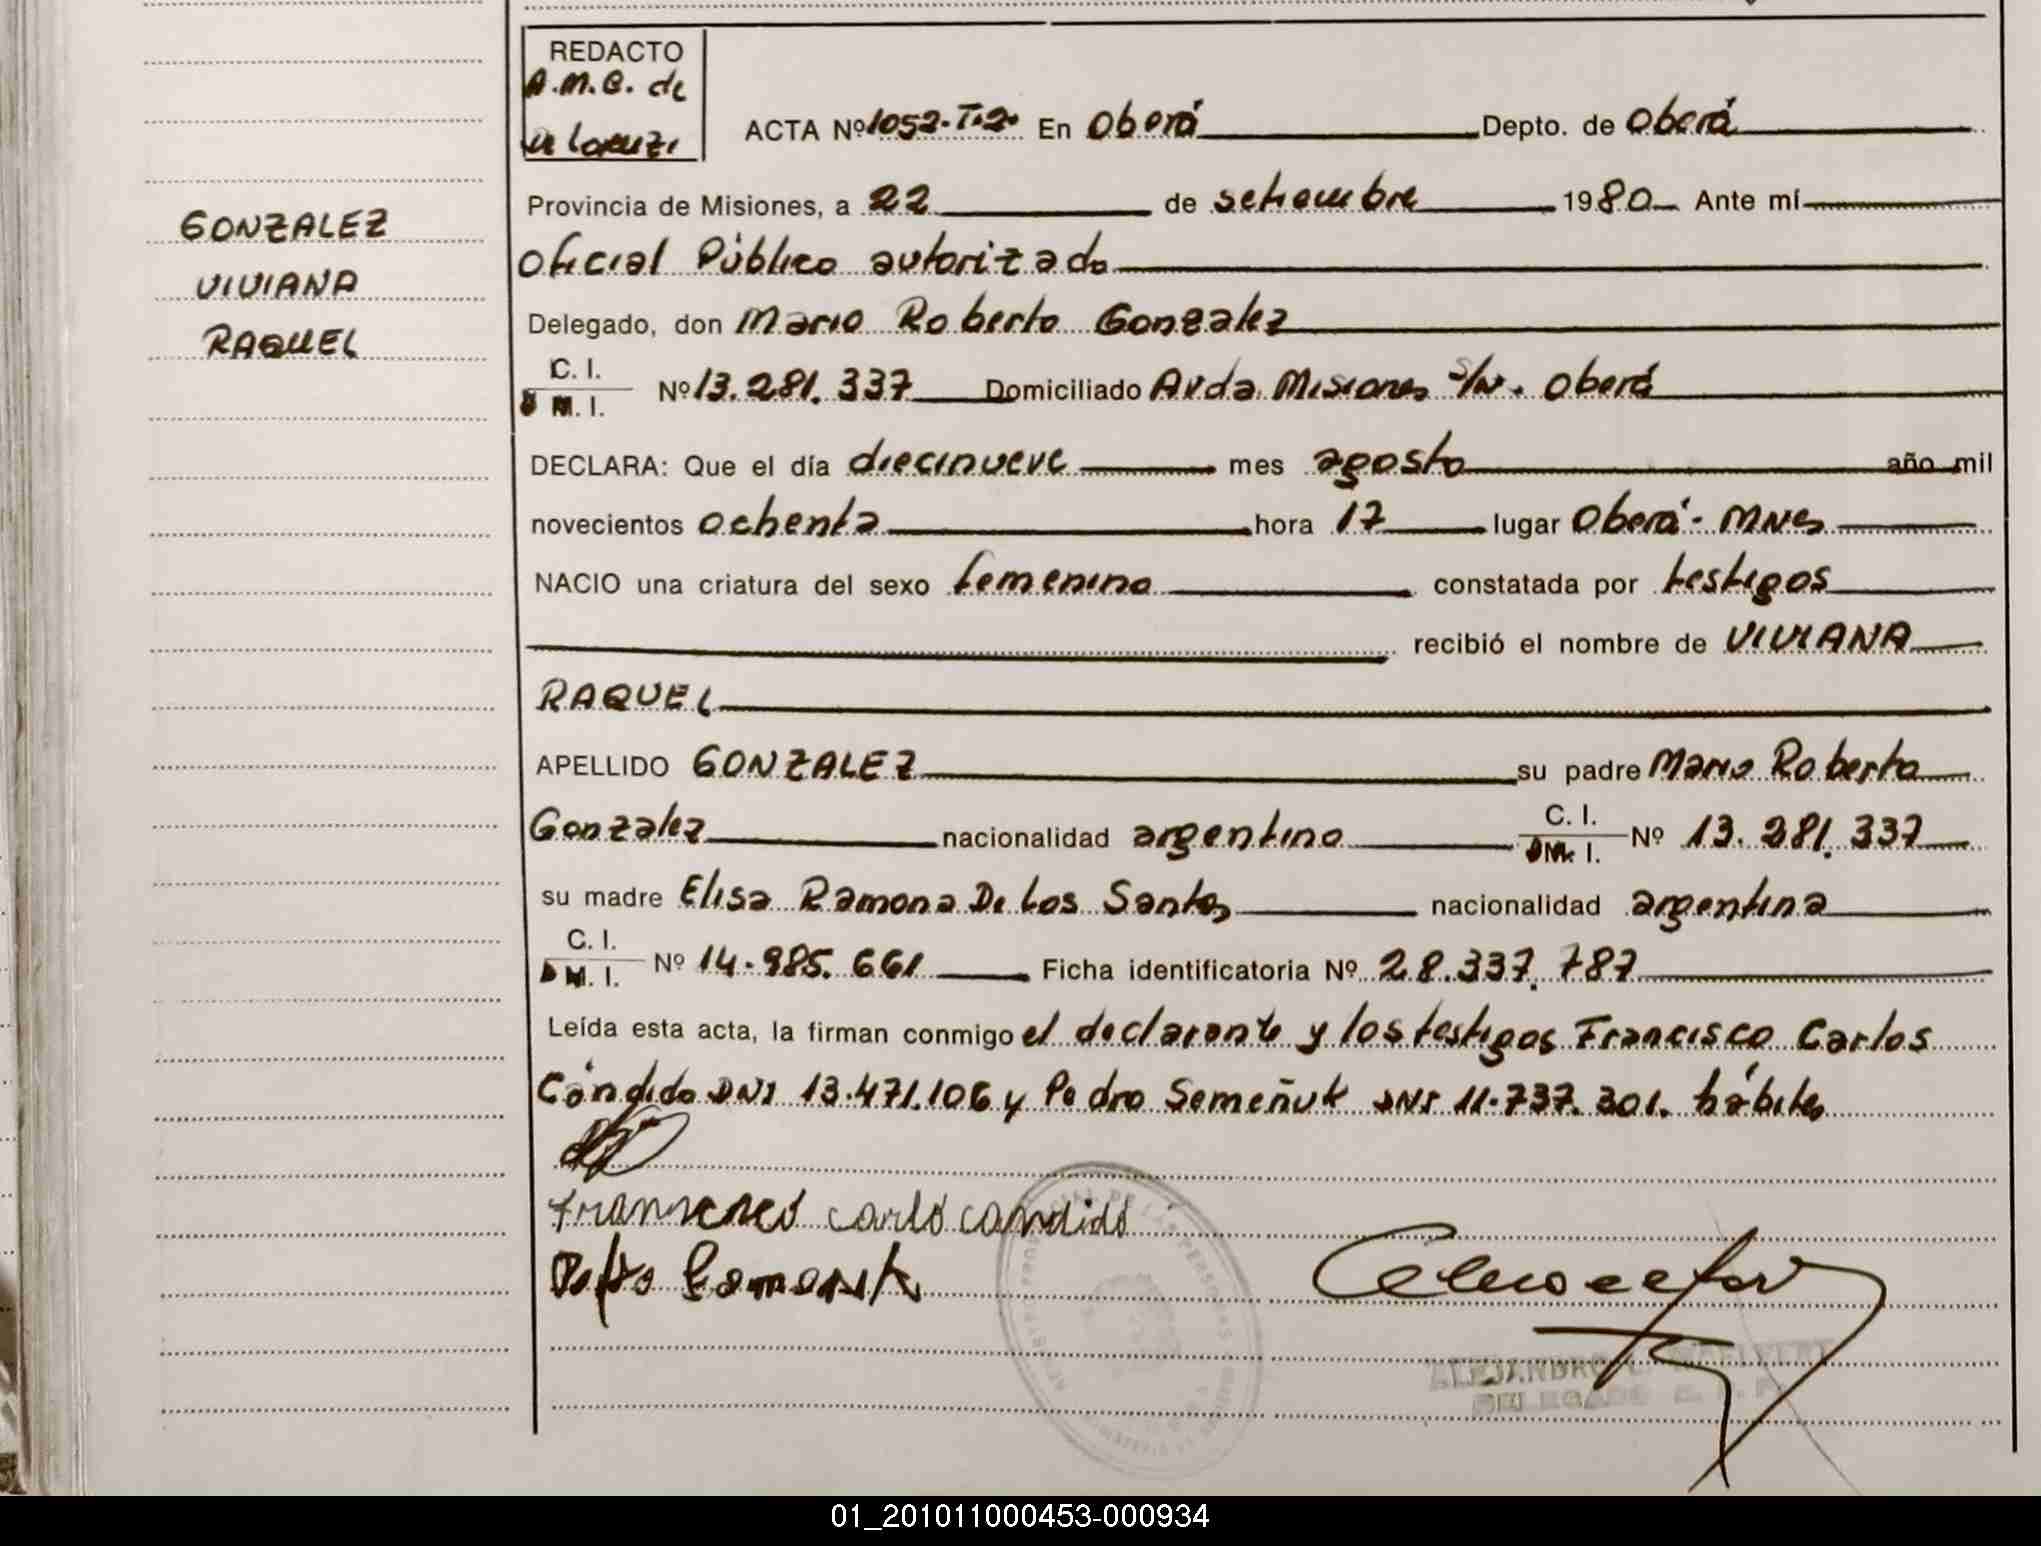 REDACTO
A.M.G. de
ACTA Nº 1052-T.2º En Oberá Depto. de Oberá
Provincia de Misiones, a 22 de setiembre 1980 Ante mí
GONZALEZ
VIVIANA
RAQUEL
Oficial Público autorizado
Delegado, don Mario Roberto Gonzalez
C. I.
D M. I. Nº 13.281.337 Domiciliado Avda. Misiones s/N. Oberá
DECLARA: Que el día diecinueve mes agosto año mil
novecientos ochenta hora 17 lugar Oberá - Mnes
NACIO una criatura del sexo femenino constatada por testigos
recibió el nombre de VIVIANA
RAQUEL
APELLIDO GONZALEZ su padre Mario Roberto
Gonzalez nacionalidad argentino C. I. D M. I. Nº 13.281.337
su madre Elisa Ramona De Los Santos nacionalidad argentina
C. I.
D M. I. Nº 14.985.661 Ficha identificatoria Nº 28.337.787
Leída esta acta, la firman conmigo el declarante y los testigos Francisco Carlos
Cándido DNI 13.471.106 y Pedro Semeñuk DNI 11.737.301. hábiles
carlo candido
ALEJANDRO
DELEGADO
01_201011000453-000934